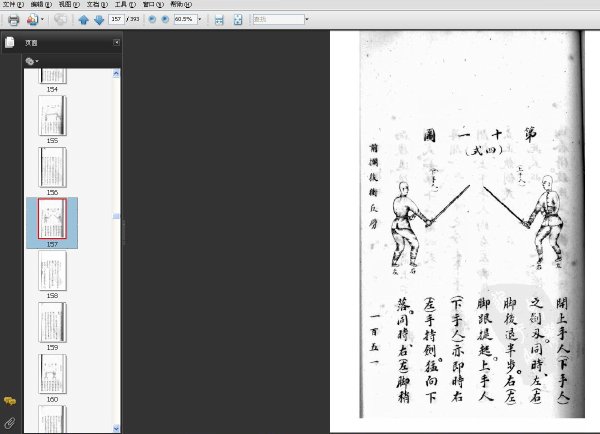 文件(F) 编辑(E) 视图(V) 文档(D) 工具(T) 窗口(W) 帮助(H)
157 / 393 60.5% 查找
页面
154
155
156
157
158
159
160
第十一圖
(四式)
(上手人)
(下手人)
左 右
右 左
開上手人(下手人)
之劍刃。同時、左(右)
脚後退半步。右(左)
脚跟提起。上手人
(下手人)亦即時右
(左)手持劍。猛向下
落。同時、右(左)脚稍
一百五一